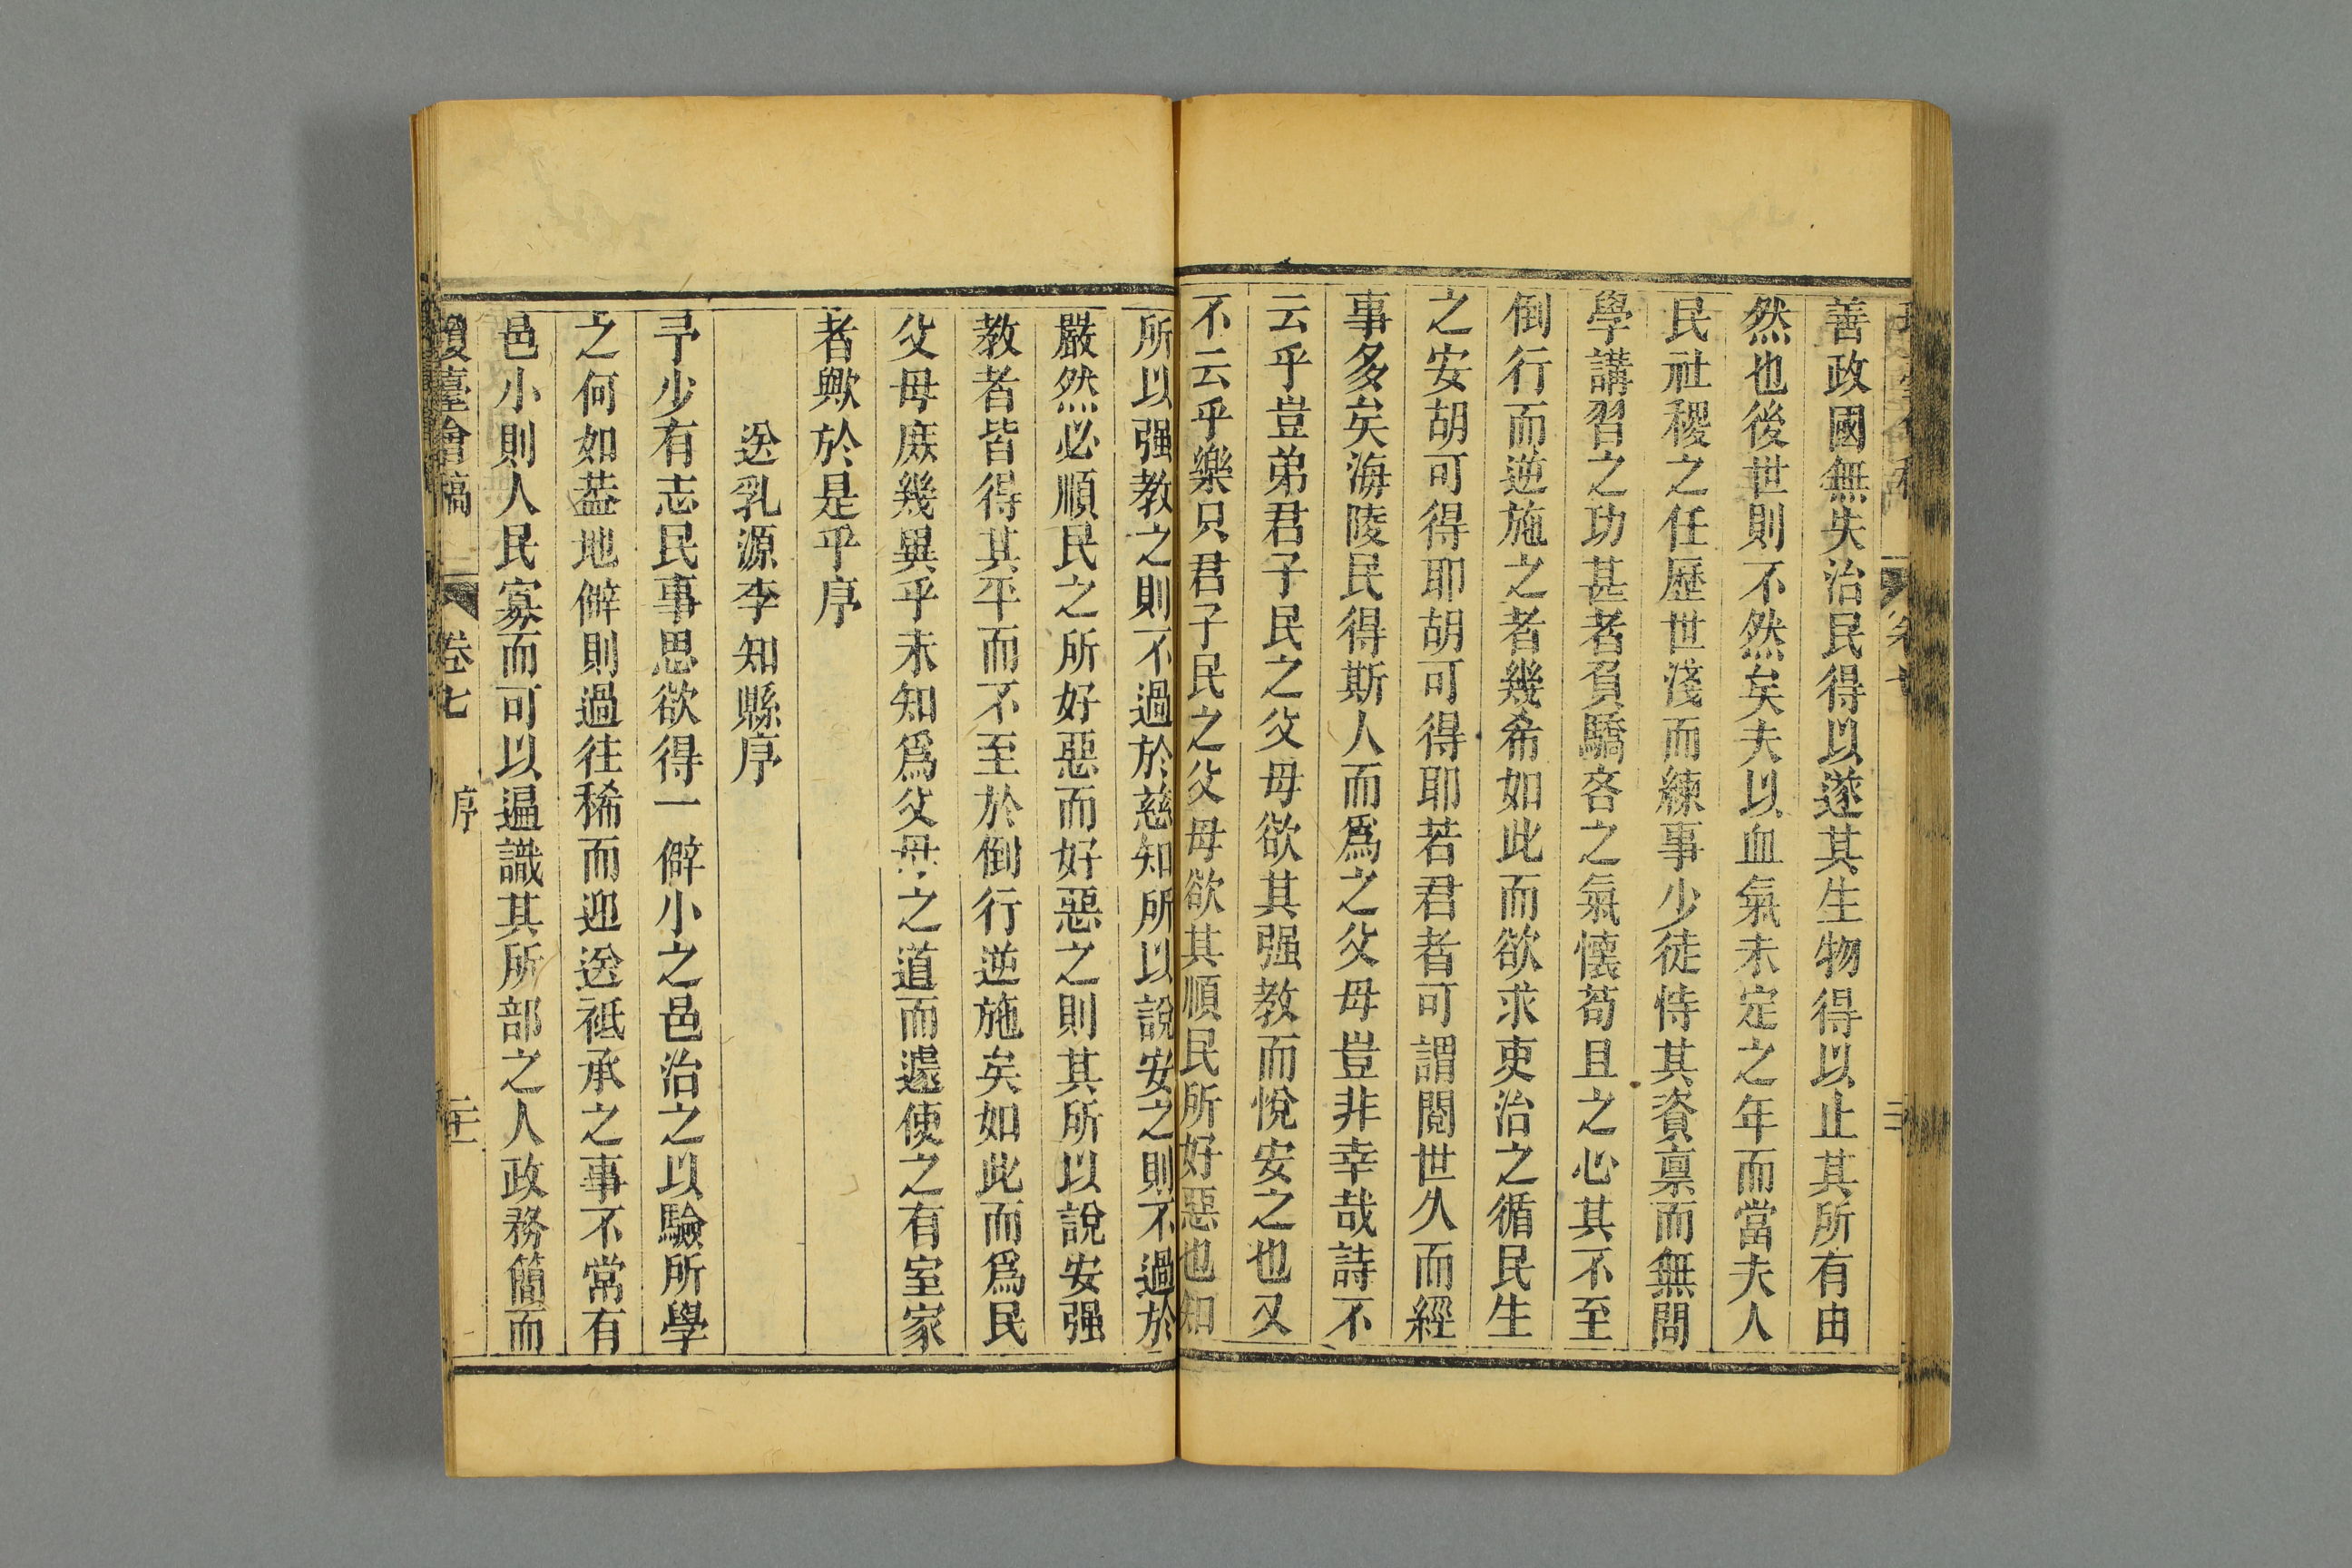 善政國無失治民得以遂其生物得以止其所有由
然也後世則不然矣夫以血氣未定之年而當夫人
民社稷之任歷世淺而練事少徒恃其資稟而無問
學講習之功甚者負驕吝之氣懷苟且之心其不至
倒行而逆施之者幾希如此而欲求吏治之循民生
之安胡可得耶胡可得耶若君者可謂閱世久而經
事多矣海陵民得斯人而爲之父母豈非幸哉詩不
云乎豈弟君子民之父母欲其强教而悅安之也又
不云乎樂只君子民之父母欲其順民所好惡也知
所以强教之則不過於慈知所以說安之則不過於
嚴然必順民之所好惡而好惡之則其所以說安强
教者皆得其平而不至於倒行逆施矣如此而爲民
父母庶幾異乎未知爲父母之道而遽使之有室家
者歟於是乎序
送乳源李知縣序
予少有志民事思欲得一僻小之邑治之以驗所學
之何如葢地僻則過往稀而迎送祗承之事不常有
邑小則人民寡而可以遍識其所部之人政務簡而
瓊臺會稿 卷七 序 二十一